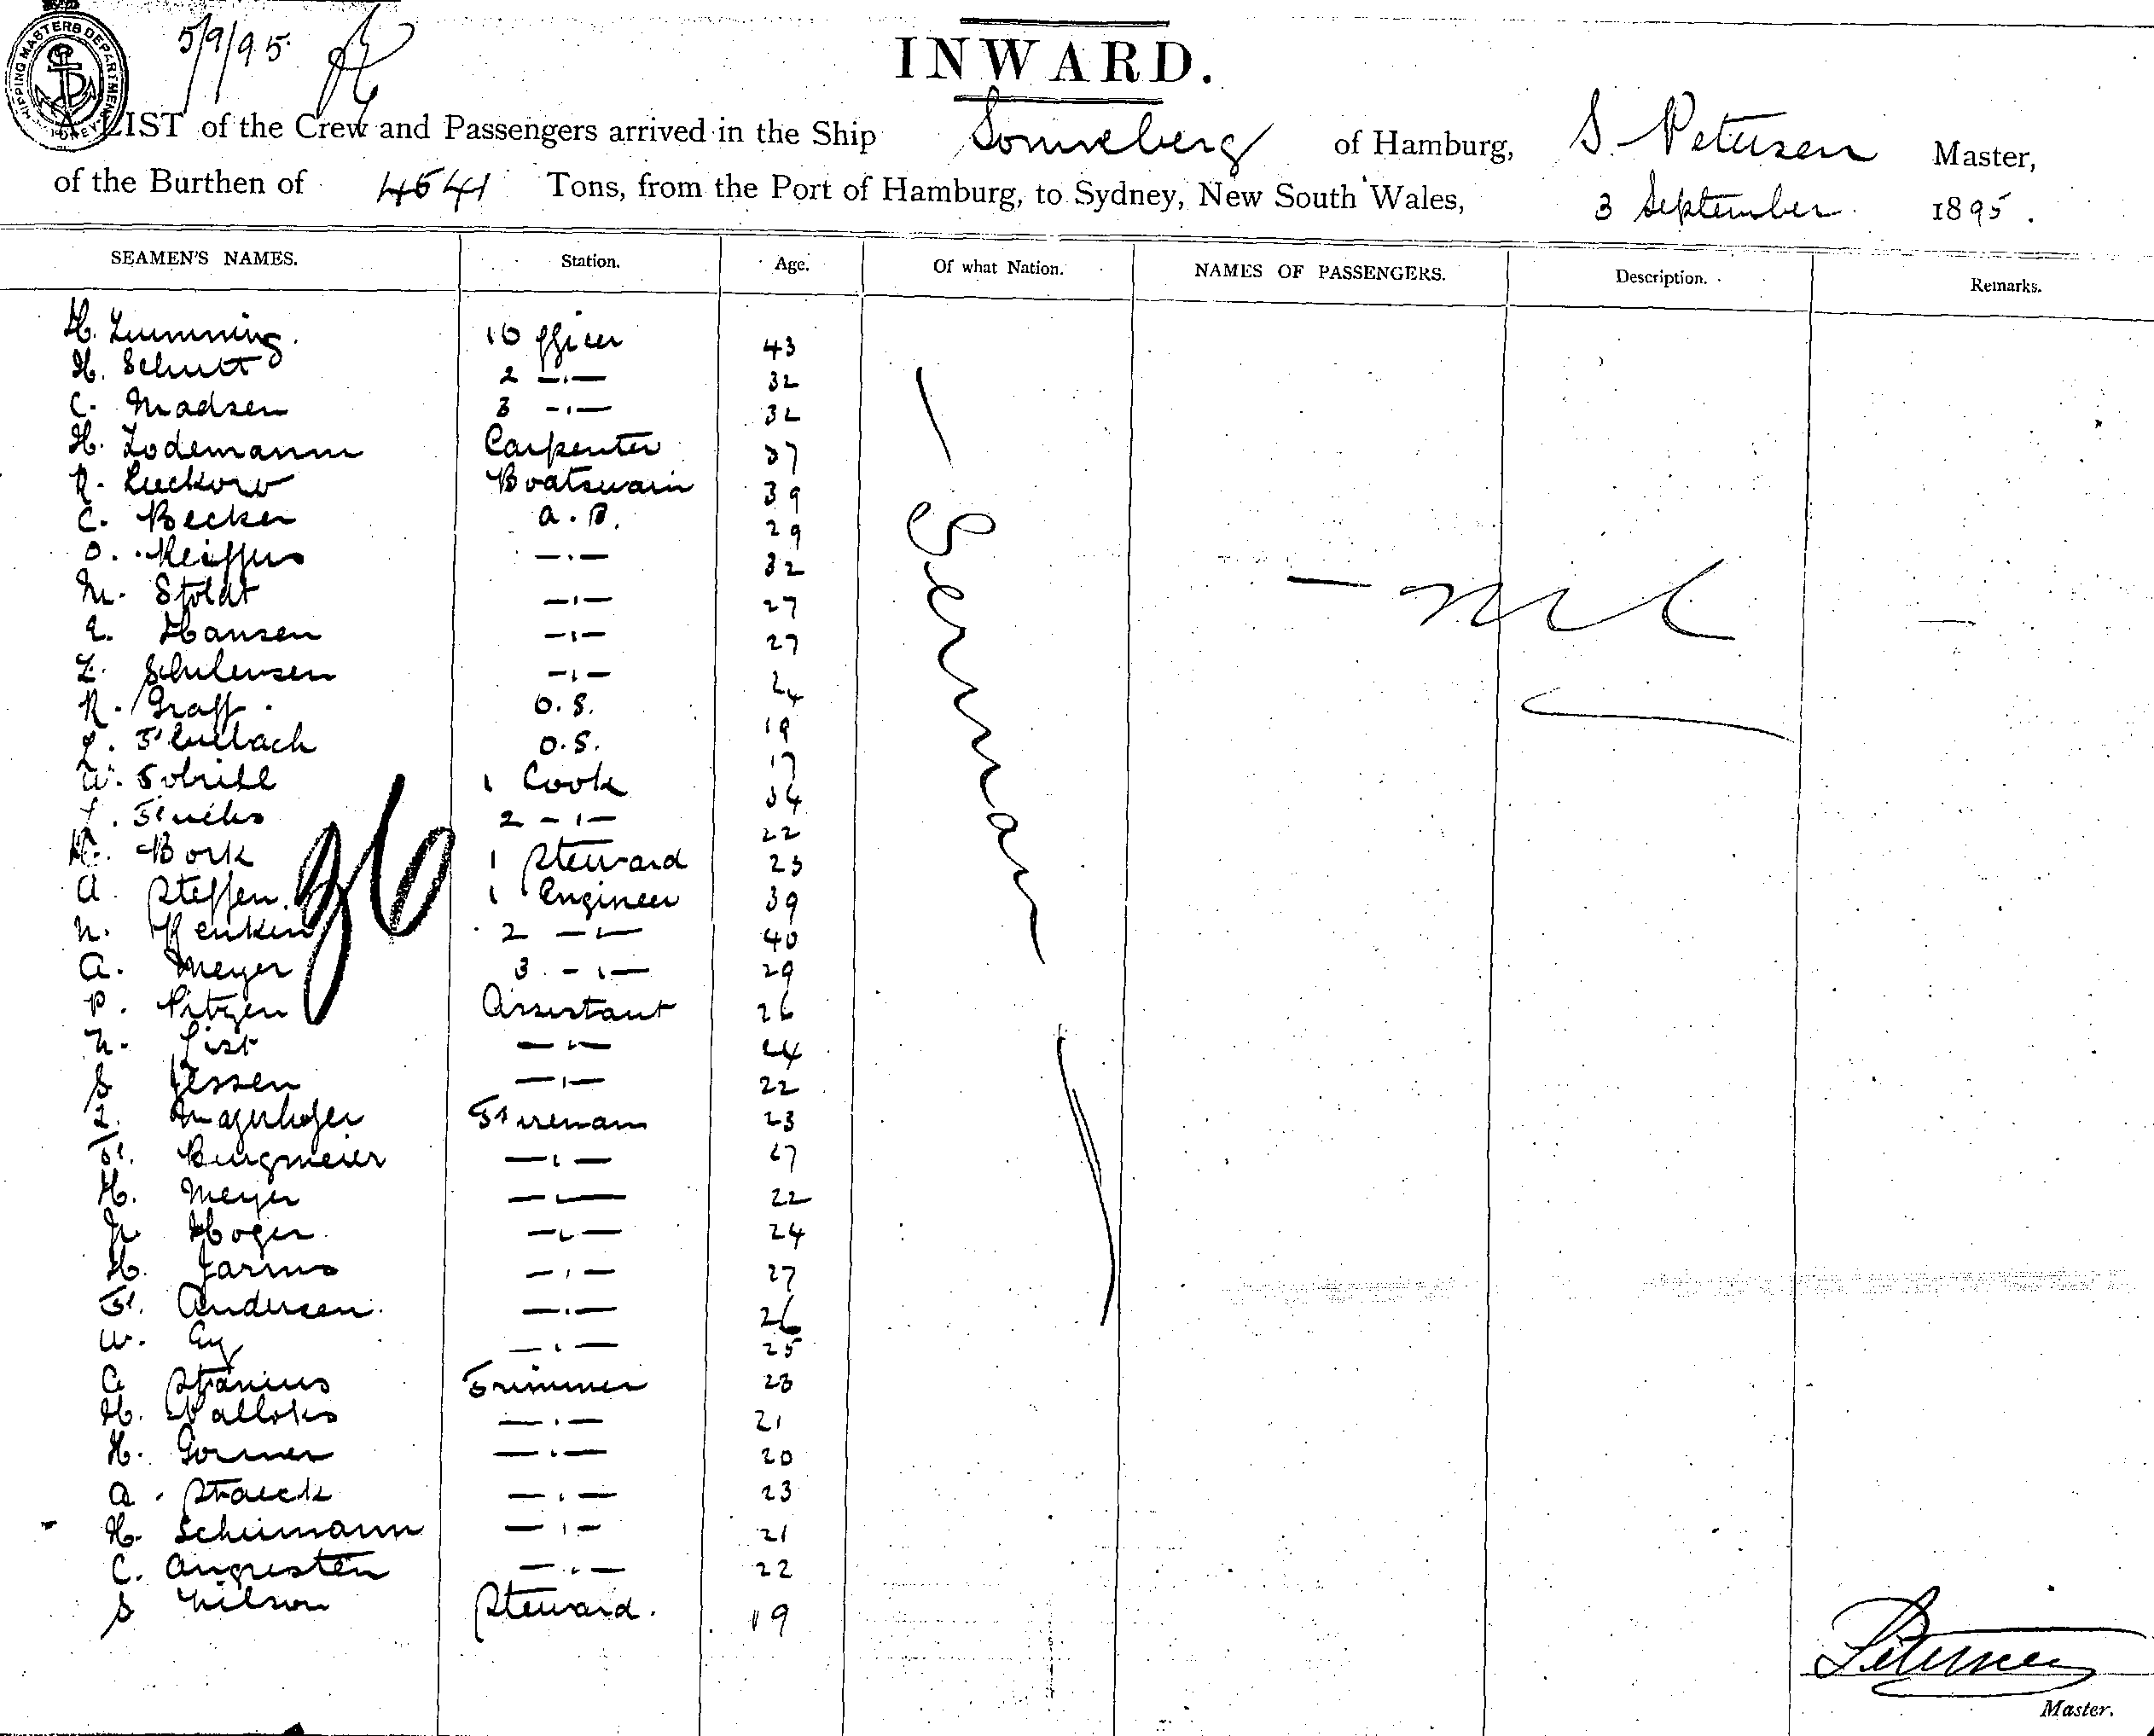 SHIPPING MASTERS DEPARTMENT SYDNEY
5/9/95
INWARD.
A LIST of the Crew and Passengers arrived in the Ship Sonneberg of Hamburg, S. Petersen Master,
of the Burthen of 4541 Tons, from the Port of Hamburg, to Sydney, New South Wales, 3 September 1895.
SEAMEN'S NAMES. Station. Age. Of what Nation. NAMES OF PASSENGERS. Description. Remarks.
H. 1 Officer 43
H. Schutt 2 —"— 32
C. Madsen 3 —"— 32
H. Lodemann Carpenter 37
R. Luckow Boatswain 39
C. Becker A.B. 29
O. —"— 32
M. Stoldt —"— 27
— German
— nil —
E. Hansen —"— 27
L. —"— 24
R. Graff O.S. 19
O.S. 17
W. 1 Cook 34
Fuchs 2 —"— 22
H. Bork 1 Steward 23
A. Steffen 1 Engineer 39
36
N. Renken 2 —"— 40
A. Meyer 3 —"— 29
P. Assistant 26
N. List —"— 24
S Jessen —"— 22
Fireman 23
F. Burgmeier —"— 27
H. Meyer —"— 22
Hoger —"— 24
H. —"— 27
F. Andersen —"— 26
W. Ey —"— 25
C Trimmer 23
H. —"— 21
H. Gorner —"— 20
A. Straeck —"— 23
H. Scheimann —"— 21
C. Angresten —"— 22
S Nilson Steward. 19
Petersen
Master.